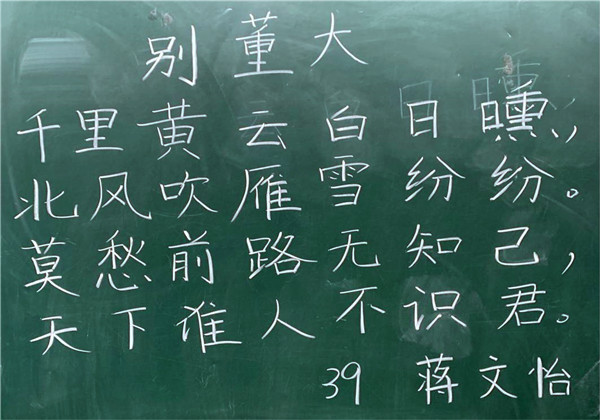 别董大
千里黄云白日曛，
北风吹雁雪纷纷。
莫愁前路无知己，
天下谁人不识君。
39 蒋文怡